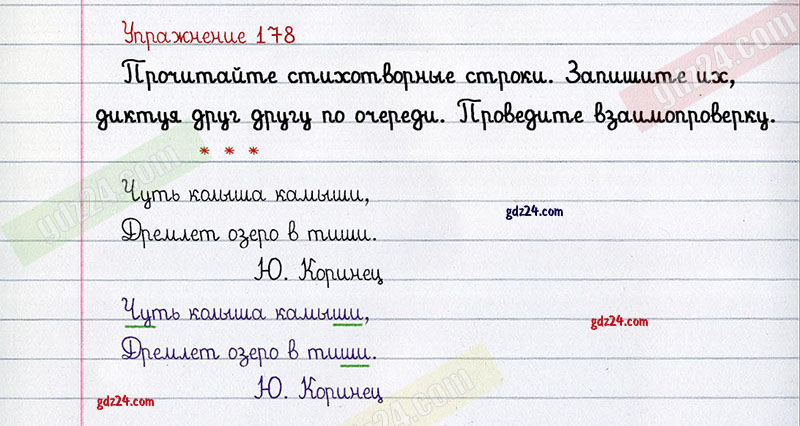 Упражнение 178
Прочитайте стихотворные строки. Запишите их,
диктуя друг другу по очереди. Проведите взаимопроверку.
* * *
Чуть колыша камыши,
gdz24.com
Дремлет озеро в тиши.
Ю. Коринец
Чуть колыша камыши,
gdz24.com
Дремлет озеро в тиши.
Ю. Коринец
gdz24.com
gdz24.com
gdz24.com
gdz24.com